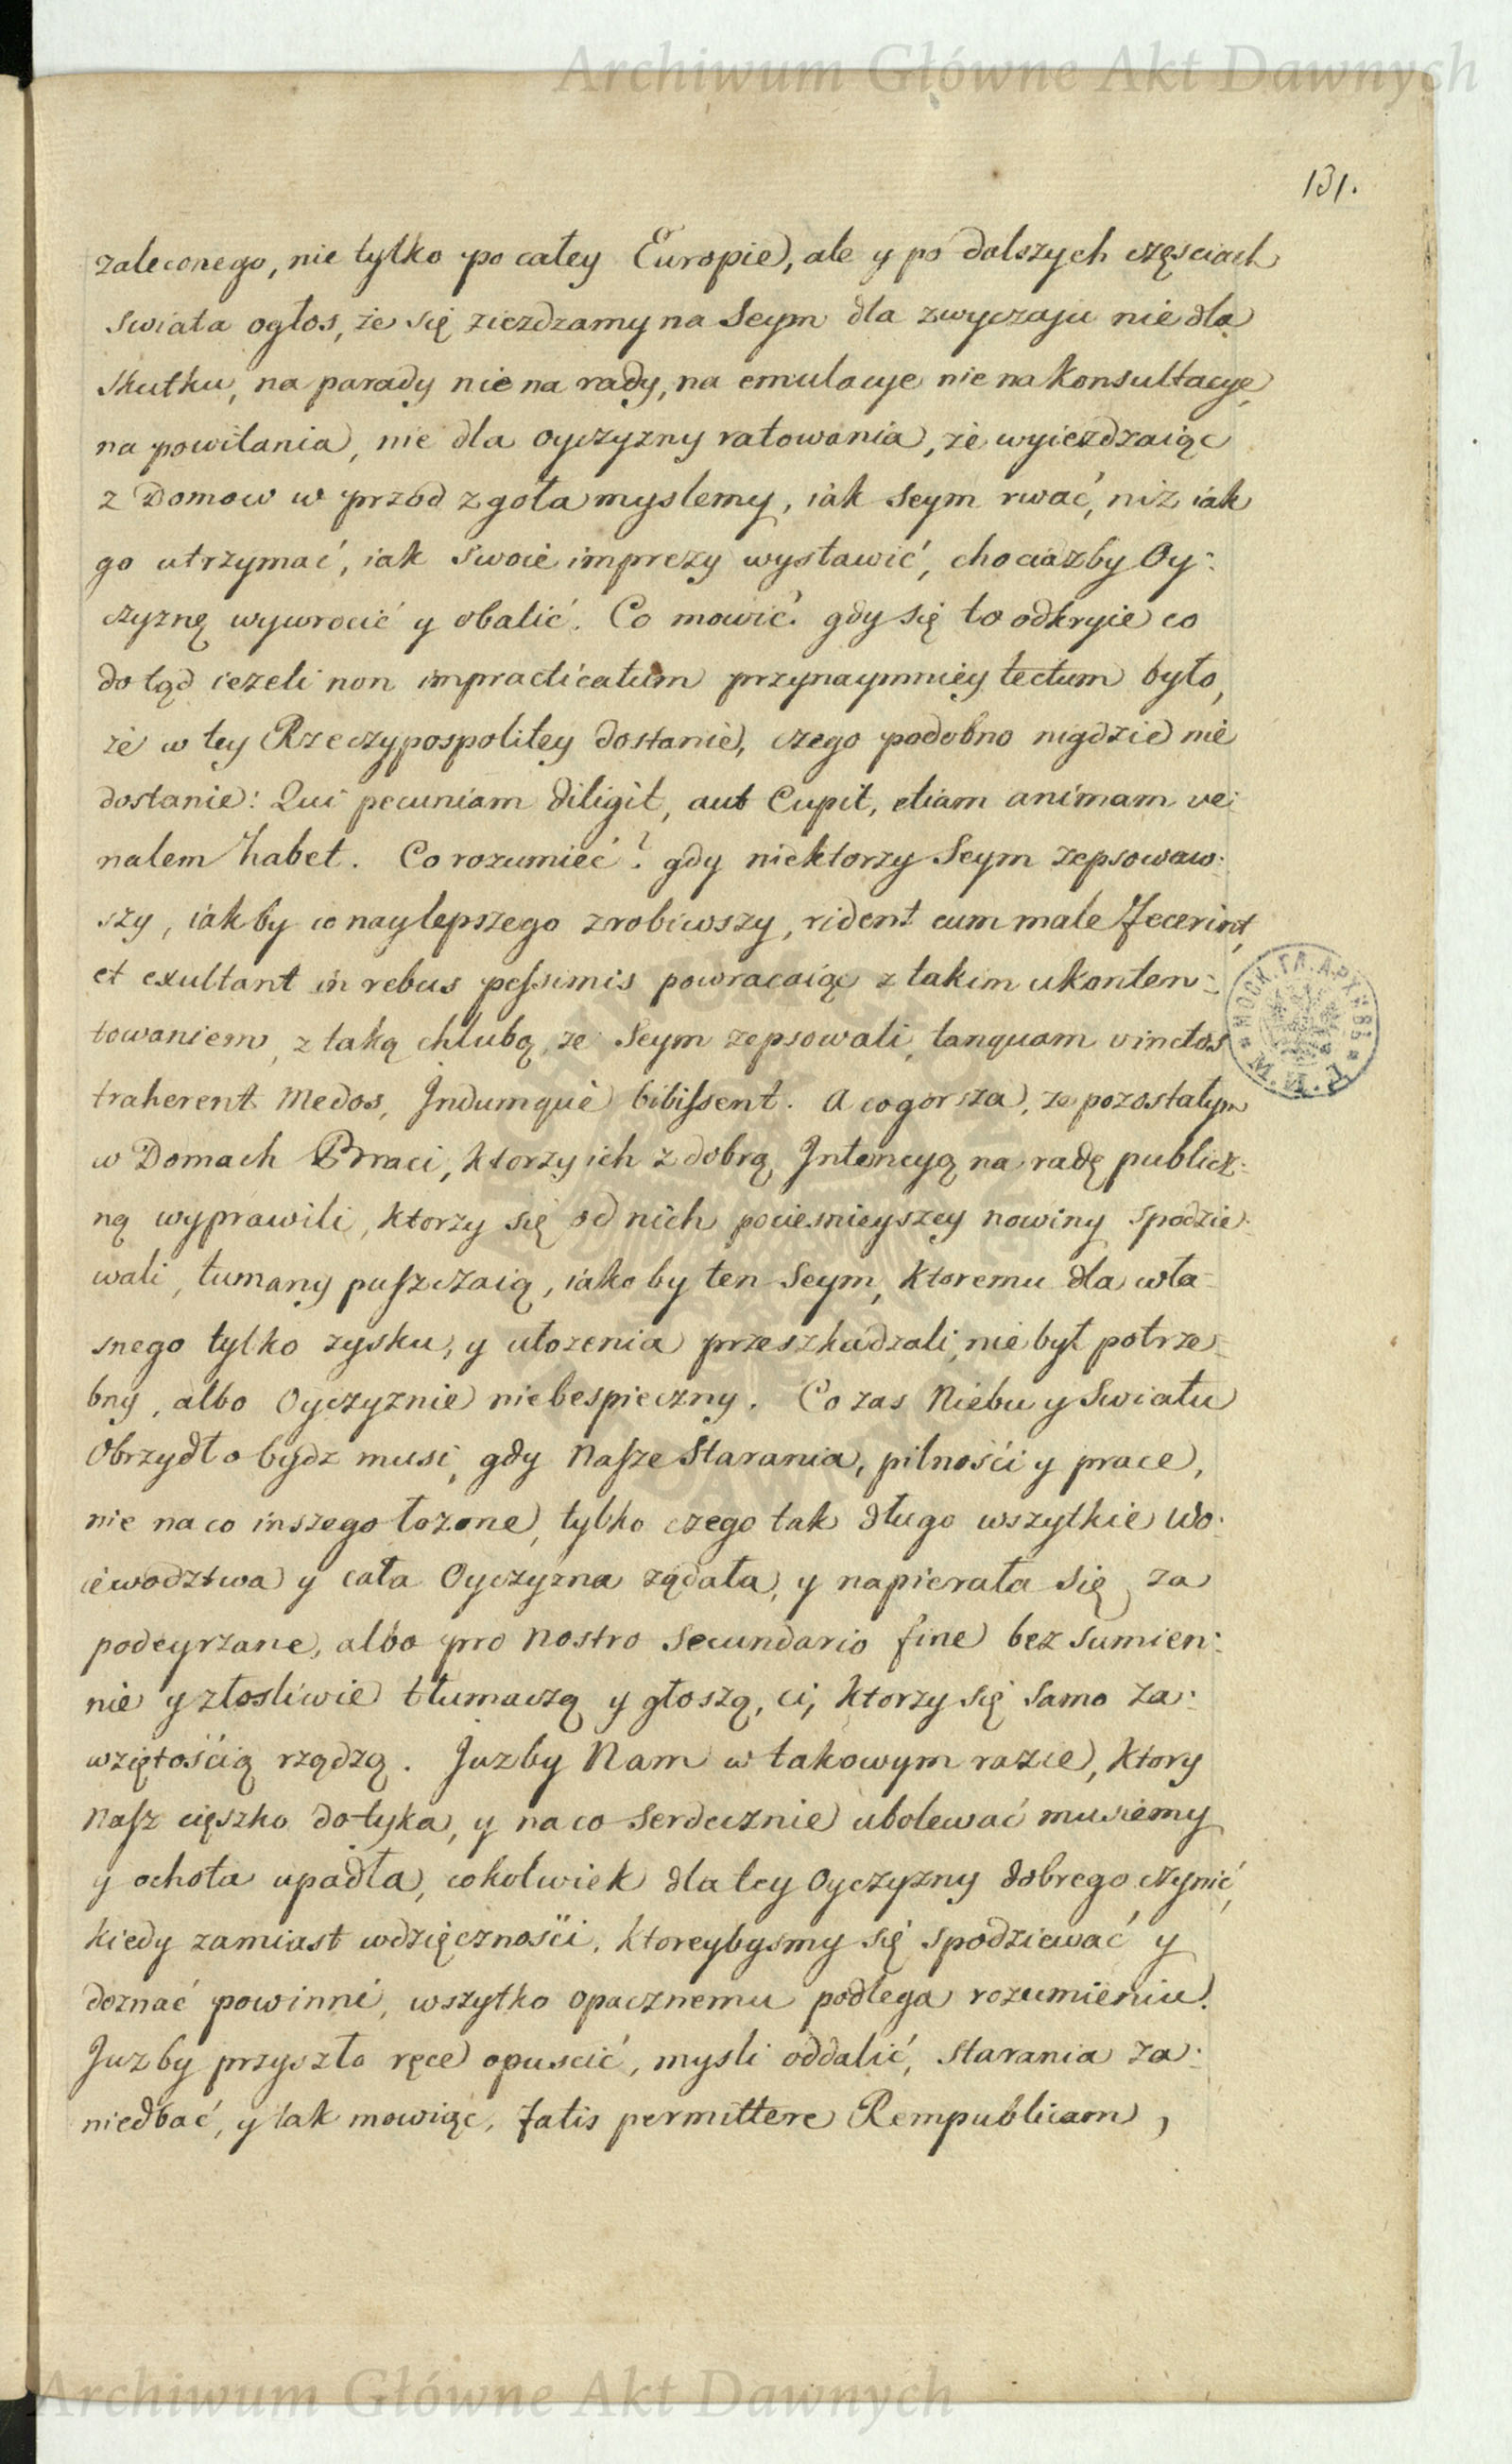 Archiwum Główne Akt Dawnych
131.
zaleconego, nie tylko po całey Europie, ale y po dalszych częsciach
swiata ogłos, że się ziezdzamy na Seym dla zwyczaju nie dla
skutku, na parady nie na rady, na emulacye nie na konsultacye,
na powitania, nie dla oyczyzny ratowania, że wyiezdzaiąc
z Domow w przod zgoła myslemy, iak Seym rwać, niż iak
go utrzymać, iak swoie imprezy wystawić, chociażby Oy:
czyznę wywrocić y obalić. Co mowić? gdy się to odkryie co
do tąd ieżeli non impracticatum przynaymniey tectum było,
że w tey Rzeczypospolitey dostanie, czego podobno nigdzie nie
dostanie: Qui pecuniam diligit, aut Cupit, etiam animam ve:
nalem habet. Co rozumieć? gdy niektorzy Seym zepsowaw:
szy, iakby co naylepszego zrobiwszy, rident cum male fecerint,
et exultant in rebus peſsimis powracaiąc z takim ukonten:
towaniem, z taką chlubą, że Seym zepsowali, tanquam vinctos
traherent Medos, Jndumque bibiſsent. A co gorsza, ze pozostałym
w Domach Braci, ktorzy ich z dobrą Jntencyą na radę publicz:
ną wyprawili, ktorzy się od nich pociesnieyszey nowiny spodzie:
wali, tumany puſzczaią, iakoby ten Seym, ktoremu dla wła:
snego tylko zysku, y ułozenia przeszkadzali, nie był potrze:
bny, albo Oyczyznie niebespieczny. Co zas Niebu y Swiatu
Obrzydło bydz musi, gdy Naſze Starania, pilności y prace,
nie na co inszego łozone, tylko czego tak długo wszytkie Wo:
iewodztwa y cała Oyczyzna ządała, y napierała się, za
podeyrzane, albo pro Nostro Secundario fine bez sumien:
nie y złosliwie tłumaczą y głoszą, ci, ktorzy się samo za:
wziętością rządzą. Juzby Nam w takowym razie, ktory
Naſz cięszko dotyka, y na co serdecznie ubolewać musiemy
y ochota upadła, cokolwiek dla tey Oyczyzny dobrego czynić,
kiedy zamiast wdzięczności, ktoreybysmy się spodziewać y
doznać powinni, wszytko opacznemu podlega rozumieniu.
Juzby przyszło ręce opuscić, mysli oddalić, starania za:
niedbać, y tak mowiąc, fatis permittere Rempublicam,
МОСК. ГЛ. АРХИВЪ
М. И. Д.
Archiwum Główne Akt Dawnych